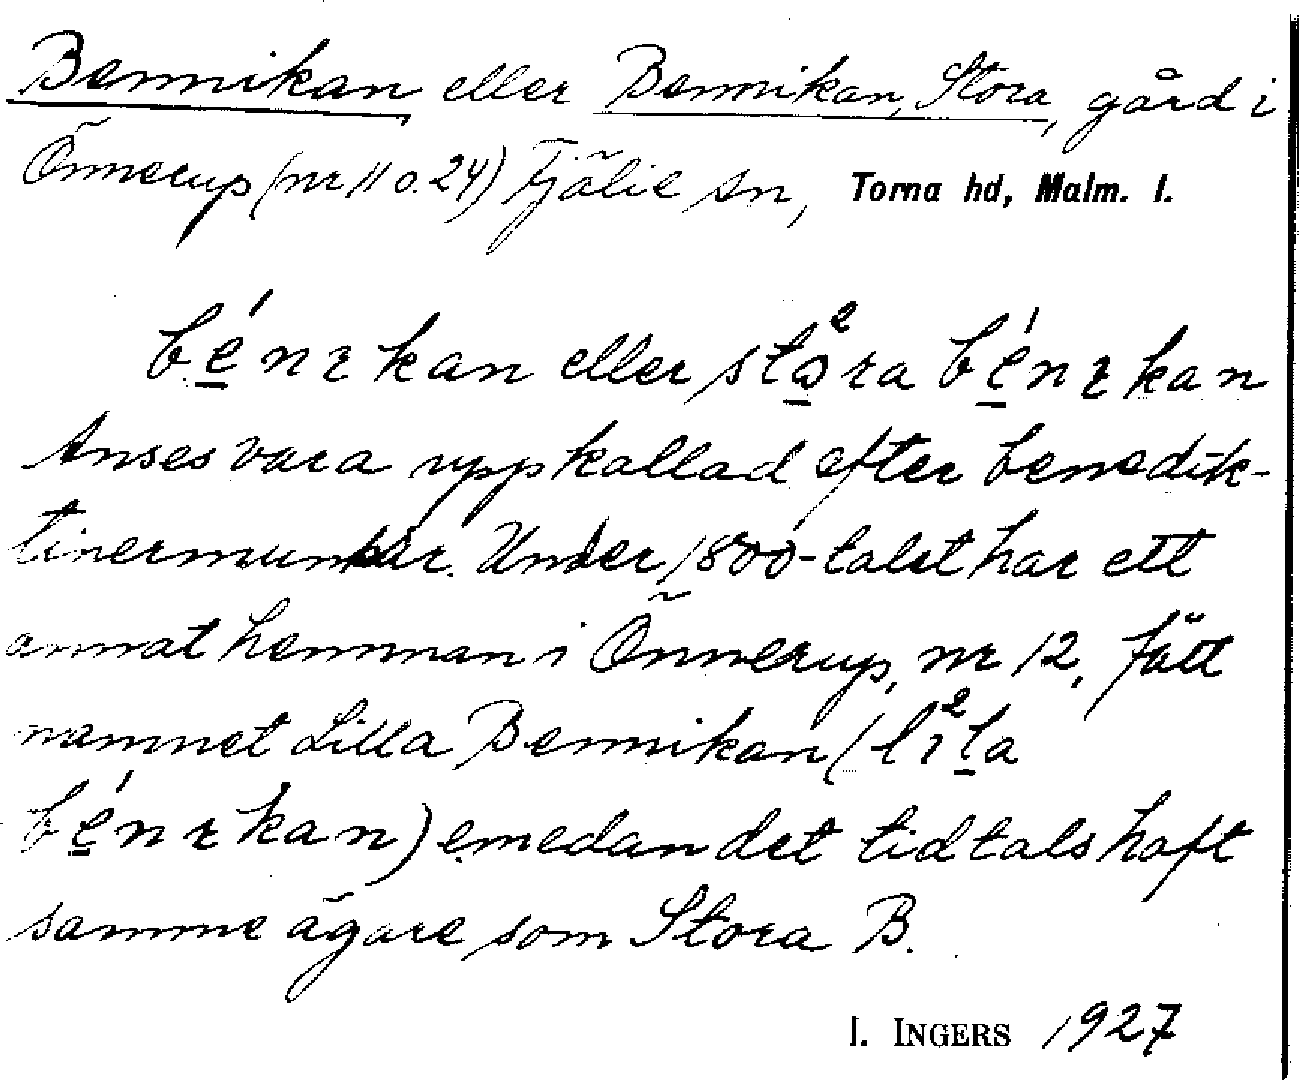 Bennikan eller Bennikan, Stora, gård i
Önnerup (nr 11 o. 24) Fjälie sn, Torna hd, Malm. l.
bę́nɩkan eller stǫ²ra bę́nɩkan
Anses vara uppkallad efter benedik-
tinermunkar. Under 1800-talet har ett
annat hemman i Önnerup, nr 12, fått
namnet Lilla Bennikan (lɩ²l̲a
bę́nɩkan) emedan det tidtals haft
samme ägare som Stora B.
I. INGERS 1927